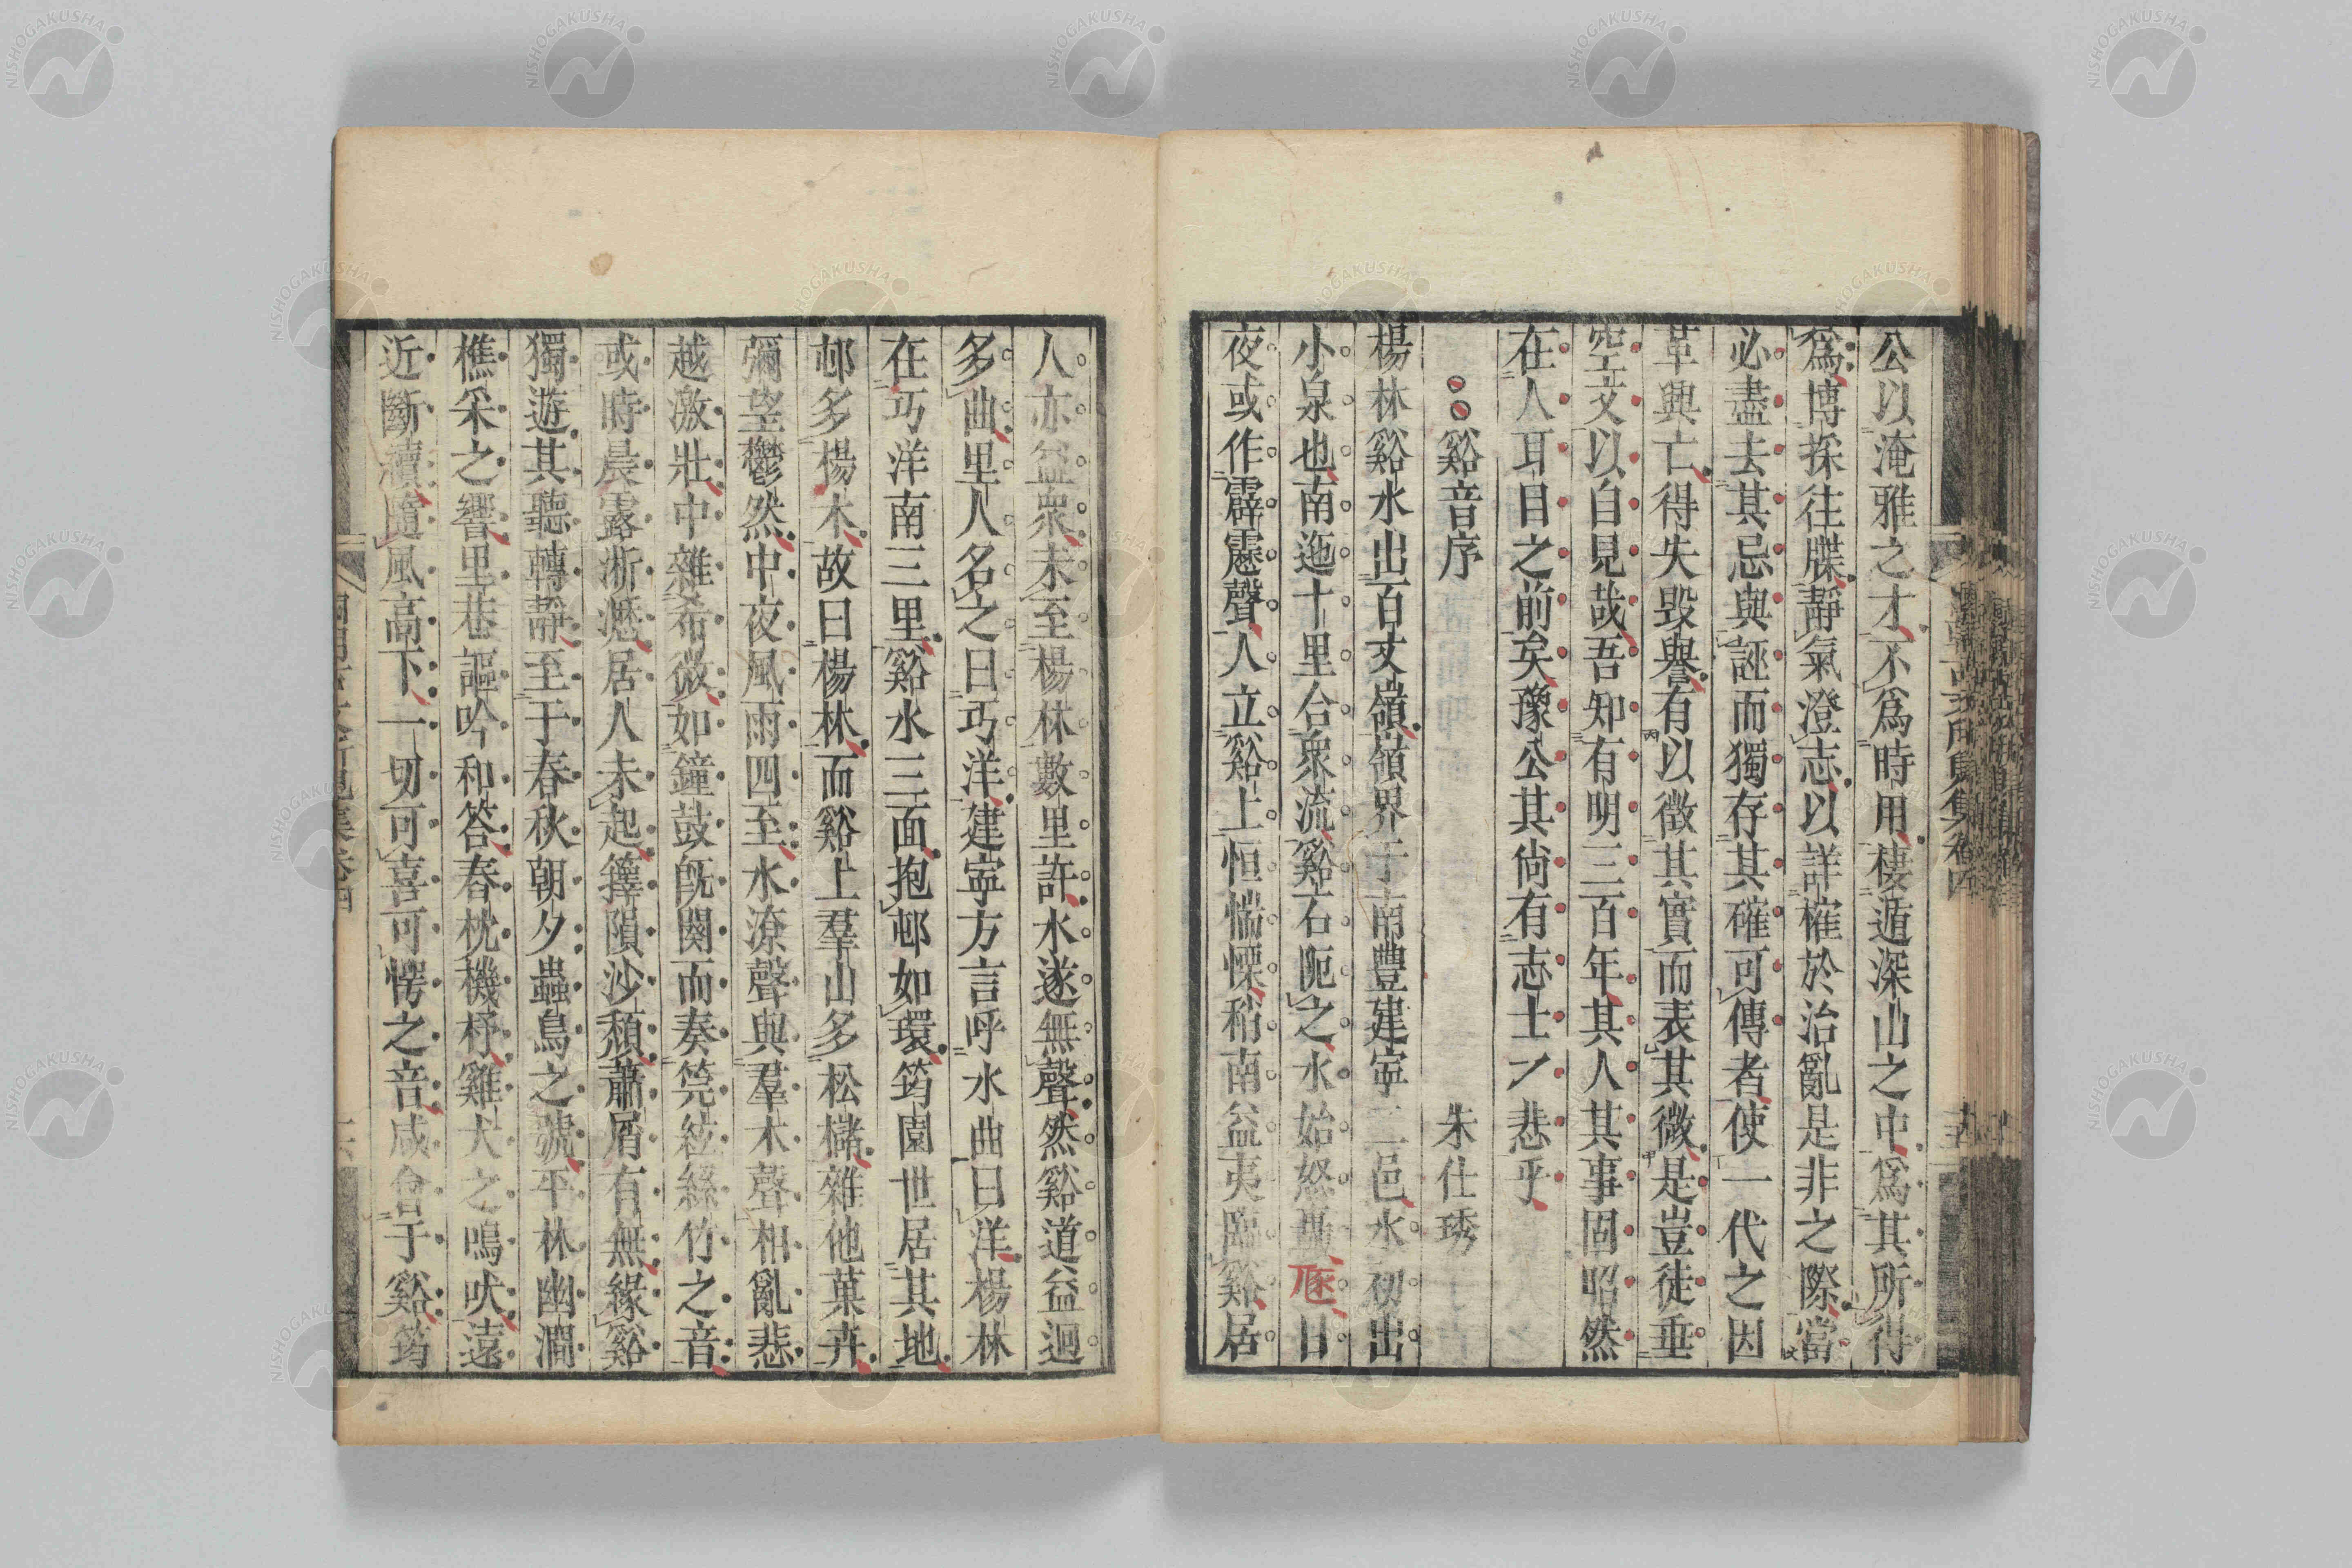 公以淹雅之才不爲時用棲遁深山之中爲其所得
爲博探往牒靜氣澄志以詳榷於治亂是非之際當
必盡去其忌與誣而獨存其確可傳者使一代之因
革興亡得失毀譽有以徵其實而表其微是豈徒垂
空文以自見哉吾知有明三百年其人其事固昭然
在人耳目之前矣豫公其尙有志士ノ悲乎
谿音序 朱仕琇
楊林谿水出百丈嶺嶺界于南豐建寧二邑水初出
小泉也南迤十里合衆流谿石阨之水始怒 豗日
夜或作霹靂聲人立谿上恒惴慄稍南益夷臨谿居
人亦益衆未至楊林數里許水遂無聲然谿道益迴
多曲里人名之曰巧洋建寧方言呼水曲曰洋楊林
在巧洋南三里谿水三面抱邨如環筠園世居其地
邨多楊木故曰楊林而谿上羣山多松櫧雜他菓卉
彌望鬱然中夜風雨四至水潦聲與羣木聲相亂悲
越激壯中雜希微如鐘鼓旣闋而奏筦絃絲竹之音
或時晨露淅瀝居人未起籜隕沙頹蕭屑有無緣谿
獨遊其聽轉靜至于春秋朝夕蟲鳥之號平林幽澗
樵采之響里巷謳吟和答舂枕機杼雞犬之鳴吠遠
近斷續隨風高下一切可喜可愕之音咸會于谿筠
NISHOGAKUSHA